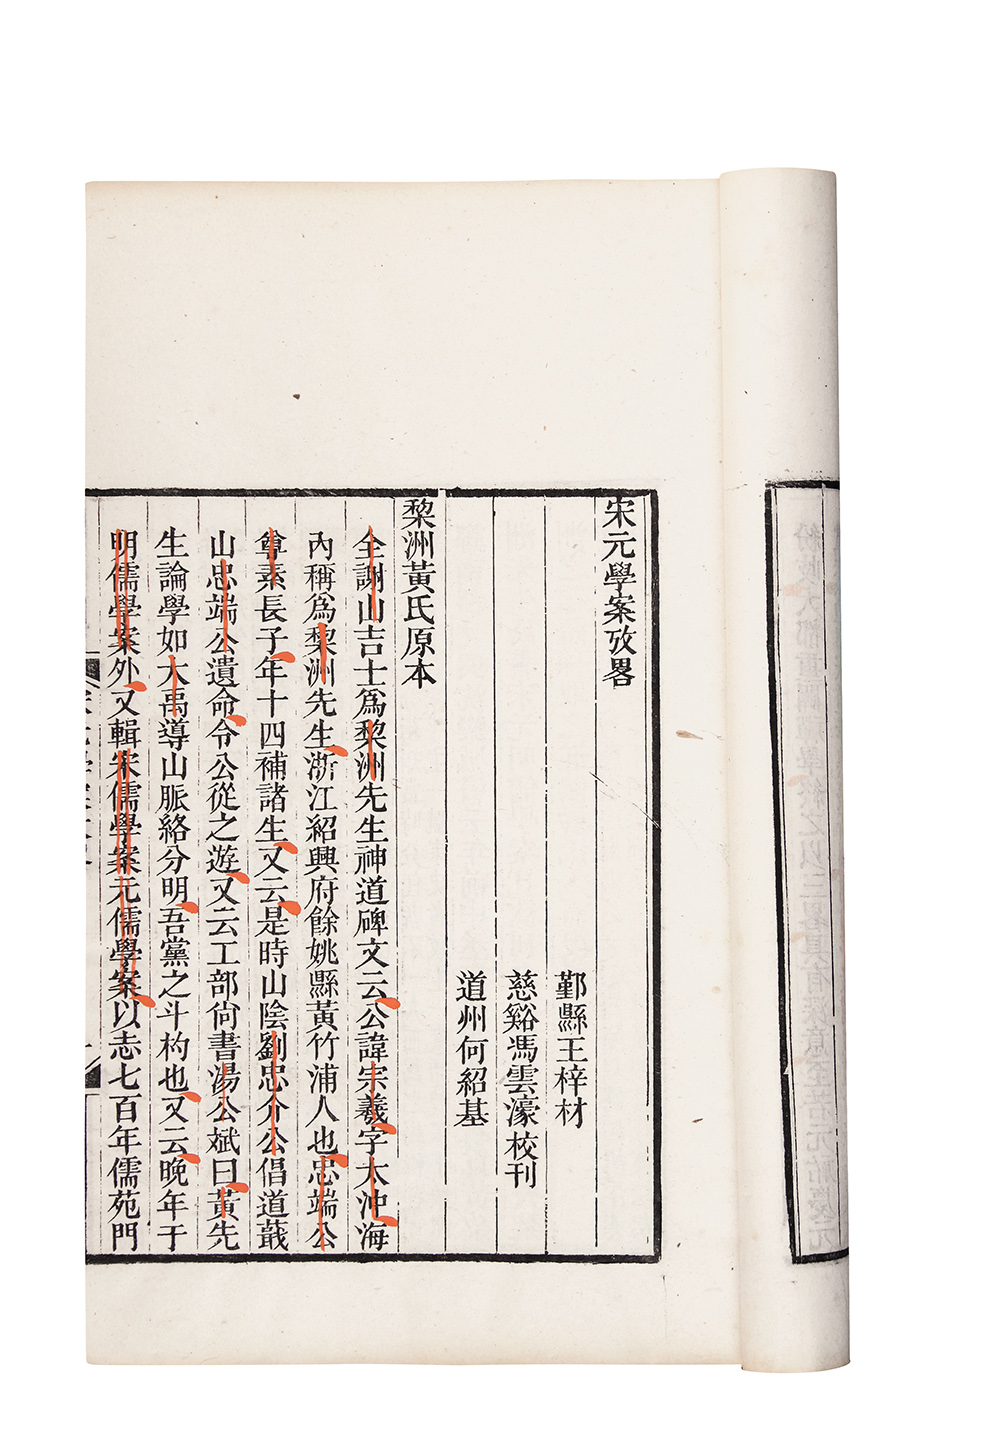 宋元學案攷畧
鄞縣王梓材
慈谿馮雲濠校刊
道州何紹基
黎洲黃氏原本
全謝山吉士爲黎洲先生神道碑文云公諱宗羲字太沖海
內稱爲黎洲先生浙江紹興府餘姚縣黃竹浦人也忠端公
尊素長子年十四補諸生又云是時山陰劉忠介公倡道蕺
山忠端公遺命令公從之遊又云工部尙書湯公斌曰黃先
生論學如大禹導山脈絡分明吾黨之斗杓也又云晚年于
明儒學案外又輯宋儒學案元儒學案以志七百年儒苑門